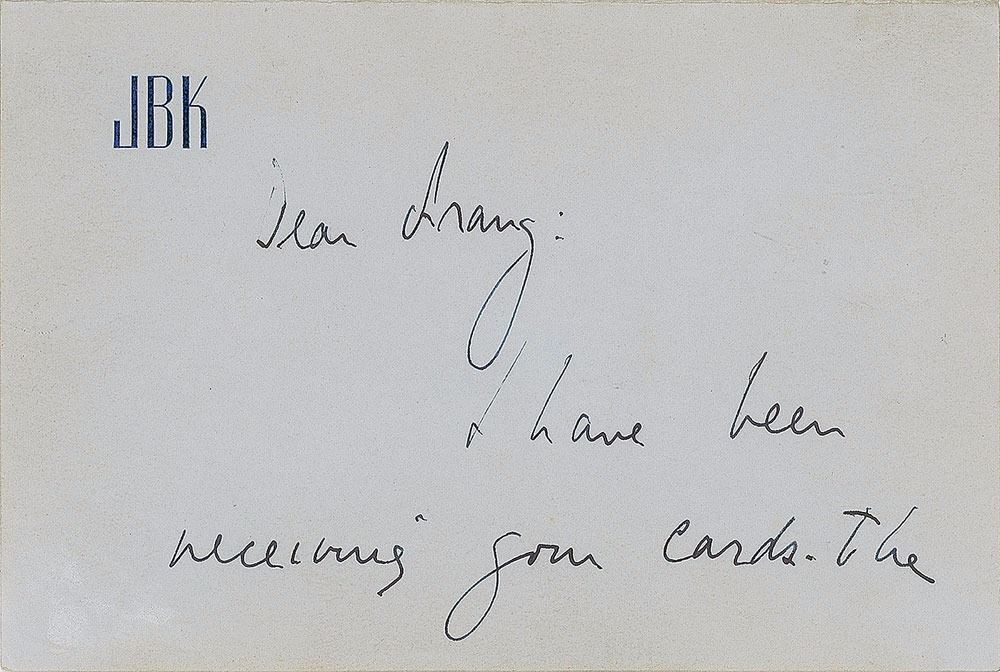 JBK
Dear Frang:
I have been
receiving your cards. The